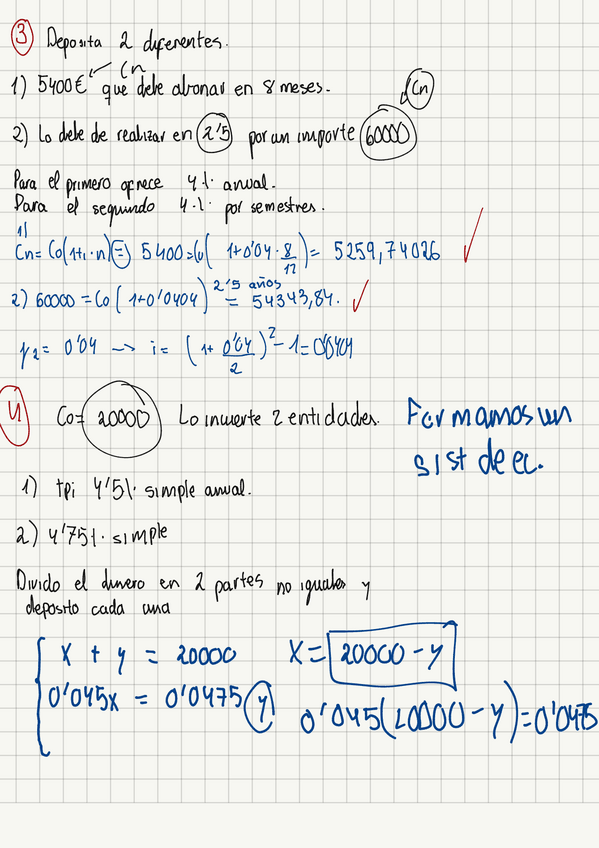 3 Deposita 2 diferentes.
1) 5400€ ← Cn que debe abonar en 8 meses.
Cn
2) Lo debe de realizar en 2'5 por un importe 60000
Para el primero ofrece 4% anual.
Para el segundo 4% por semestres.
1)
Cn = Co(1+i·n) = 5400 = Co(1+0'04·8/12) = 5259,74026 ✓
2) 60000 = Co(1+0'0404)^2'5 años = 54343,84. ✓
j2 = 0'04 → i = (1+0'04/2)^2 - 1 = 0'0404
4 Co = 20000 Lo invierte 2 entidades.
Formamos un
sist de ec.
1) tpi 4'5% simple anual.
2) 4'75% simple
Divido el dinero en 2 partes no iguales y
deposito cada una
x + y = 20000 x = 20000 - y
0'045x = 0'0475 y
0'045(20000 - y) = 0'0475